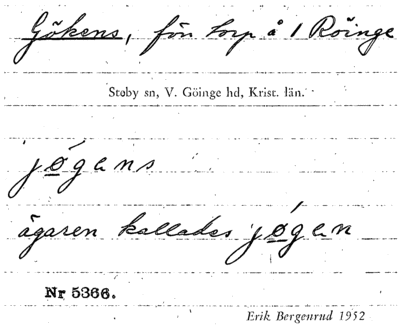 Gökens, förr torp å 1 Röinge
Støby sn, V. Göinge hd, Krist. län.
jøgens
ägaren kallades jøgen
Nr 5366.
Erik Bergenrud 1952